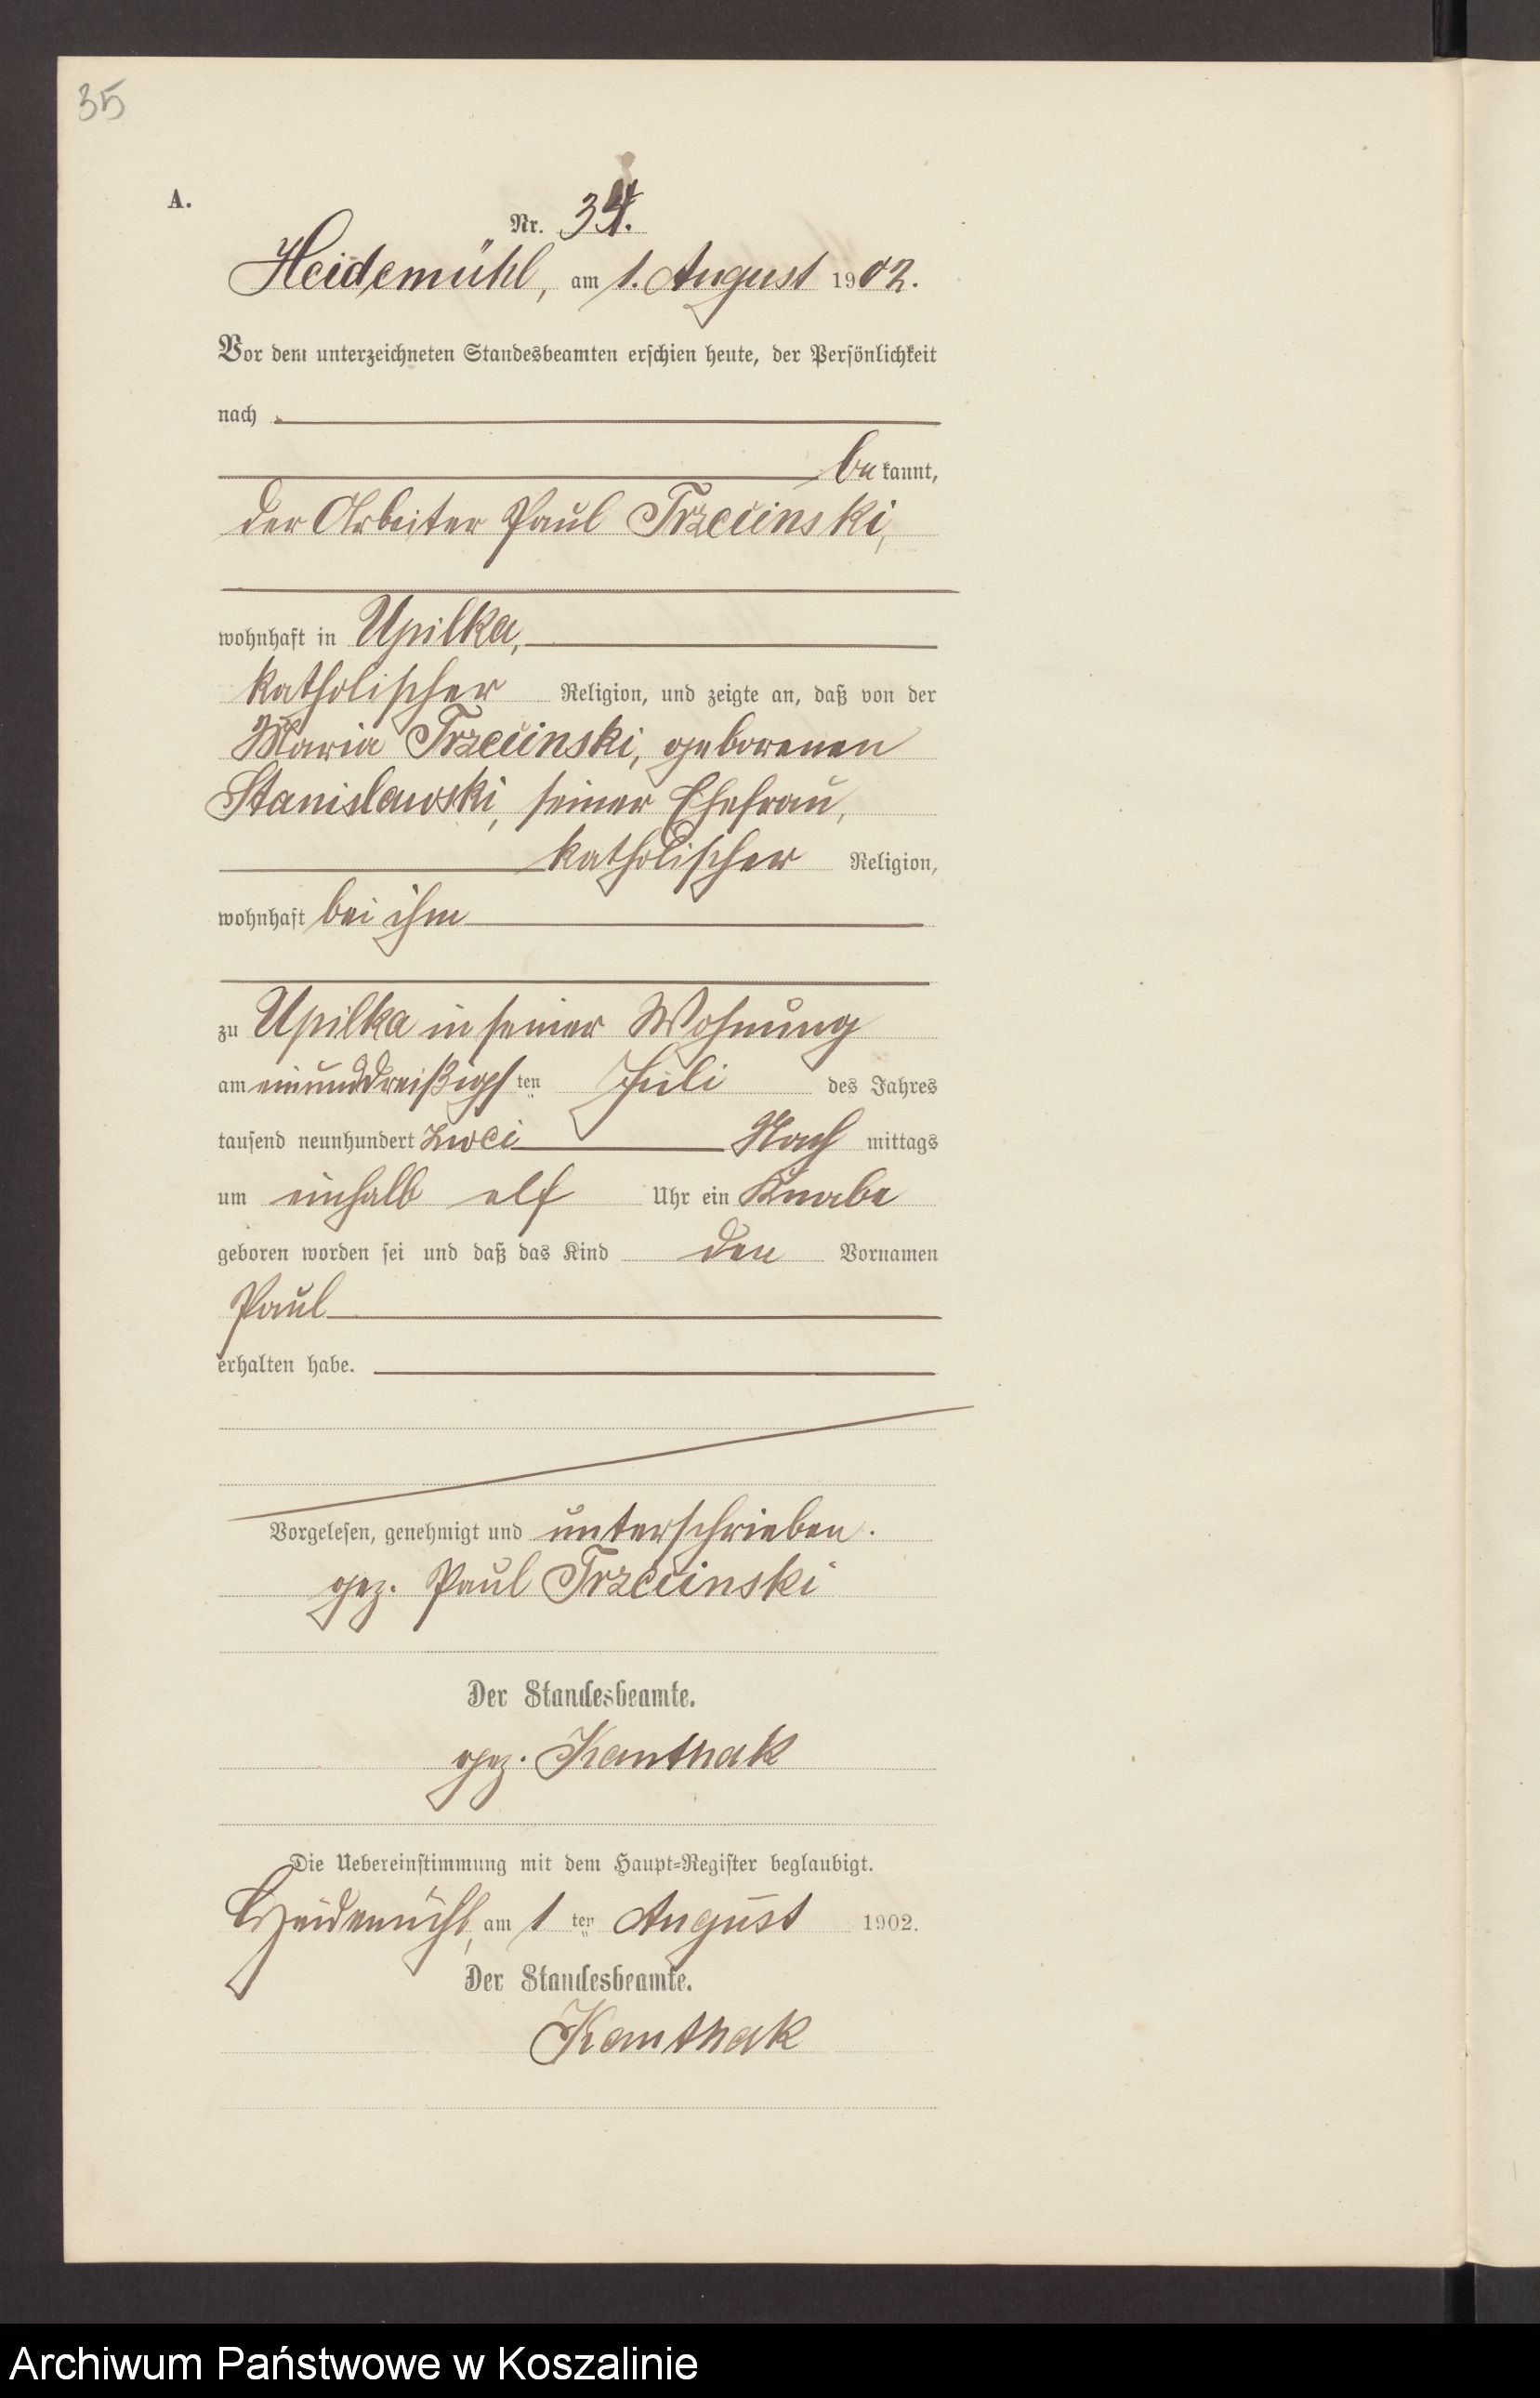 35
A.
Nr. 34.
Heidemühl, am 1. August 1902.
Vor dem unterzeichneten Standesbeamten erschien heute, der Persönlichkeit
nach
bekannt,
der Arbeiter Paul Trzeciinski,
wohnhaft in Upilka,
katholischer Religion, und zeigte an, daß von der
Maria Trzeciinski, geborenen
Stanislawski, seiner Ehefrau,
katholischer Religion,
wohnhaft bei ihm
zu Upilka in seiner Wohnung
am einunddreißigsten Juli des Jahres
tausend neunhundert zwei Nachmittags
um einhalb elf Uhr ein Knabe
geboren worden sei und daß das Kind den Vornamen
Paul
erhalten habe.
Vorgelesen, genehmigt und unterschrieben.
gez. Paul Trzeciinski
Der Standesbeamte.
gez. Kanthak
Die Uebereinstimmung mit dem Haupt-Register beglaubigt.
Heidemühl, am 1ten August 1902.
Der Standesbeamte.
Kanthak
Archiwum Państwowe w Koszalinie